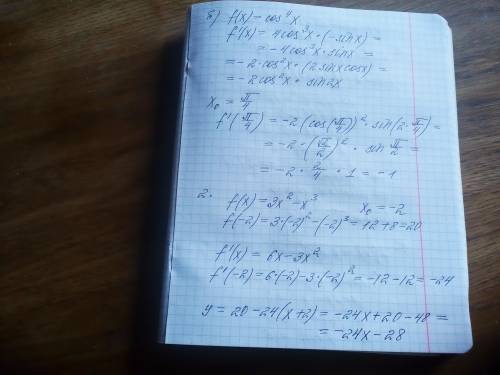 б) f(x) = cos⁴x
f'(x) = 4cos³x · (-sinx) =
= -4cos³x · sinx =
= -2·cos²x · (2sinx cosx) =
= -2cos²x · sin2x
x₀ = π/4
f'(π/4) = -2(cos(π/4))² · sin(2·π/4) =
= -2·(√2/2)² · sin π/2 =
= -2 · 2/4 · 1 = -1
2. f(x) = 3x² - x³ x₀ = -2
f(-2) = 3·(-2)² - (-2)³ = 12+8 = 20
f'(x) = 6x - 3x²
f'(-2) = 6·(-2) - 3·(-2)² = -12-12 = -24
y = 20 - 24(x+2) = -24x + 20 - 48 =
= -24x - 28